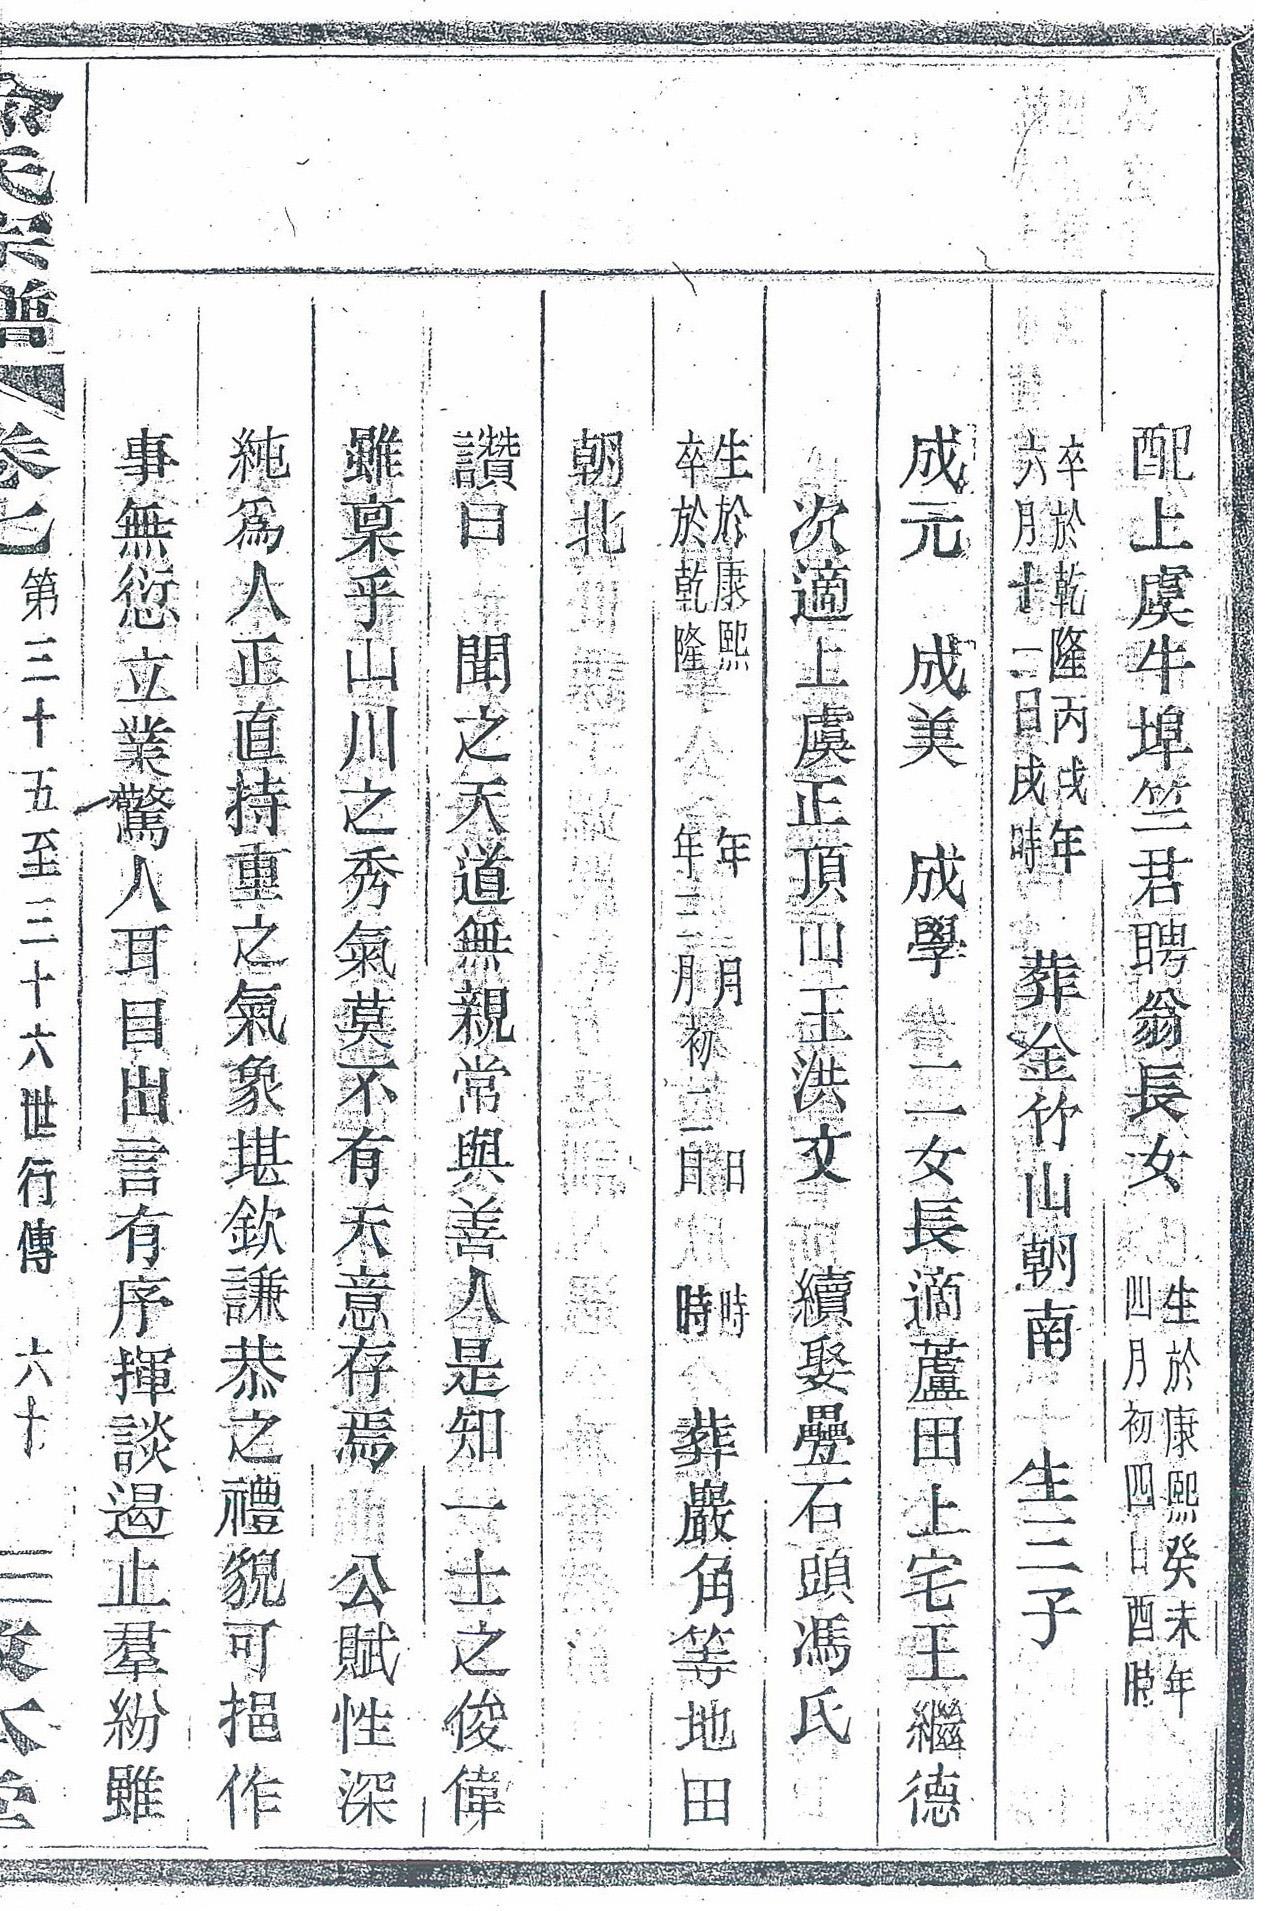 配上虞牛埠竺君聘翁長女 生於康熙癸未年四月初四日酉時
卒於乾隆丙戌年六月十二日戌時 葬金竹山朝南 生三子
成元 成美 成學 二女長適蘆田上宅王繼德
次適上虞正頂山王洪文 續娶疊石頭馮氏
生於康熙 年 月 日 時卒於乾隆 年三月初二日 時 葬巖角等地田
朝北
讚曰 聞之天道無親常與善人是知一士之俊偉
雖稟乎山川之秀氣莫不有天意存焉 公賦性深
純爲人正直持重之氣象堪欽謙恭之禮貌可挹作
事無愆立業驚人耳目出言有序揮談遏止羣紛雖
俞氏宗譜 卷七 第三十五至三十六世行傳 六十